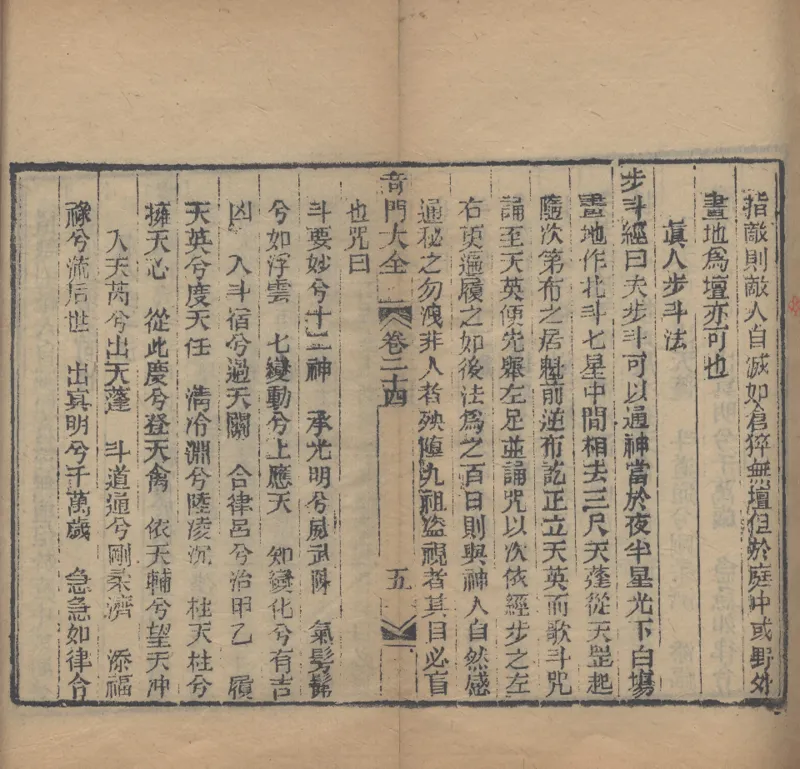 指敵則敵人自滅如倉猝無壇但於庭中或野外
畫地爲壇亦可也
眞人步斗法
步斗經曰夫步斗可以通神當於夜半星光下白塲
畫地作北斗七星中間相去三尺天蓬從天罡起
隨次第布之居魁前逆布訖正立天英而歌斗咒
誦至天英便先舉左足並誦咒以次依經步之左
右更遍履之如後法爲之百日則與神人自然感
通秘之勿洩非人者殃墮九祖盜視者其目必盲
奇門大全 卷二十四 五
也咒曰
斗要妙兮十二神 承光明兮威武陳 氣髣髴
兮如浮雲 七變動兮上應天 知變化兮有吉
凶 入斗宿兮過天關 合律呂兮治甲乙 履
天英兮度天任 淸冷淵兮陸凌沉 柱天柱兮
擁天心 從此慶兮登天禽 依天輔兮望天冲
入天芮兮出天蓬 斗道通兮剛柔濟 添福
祿兮流后世 出寘明兮千萬歲 急急如律令